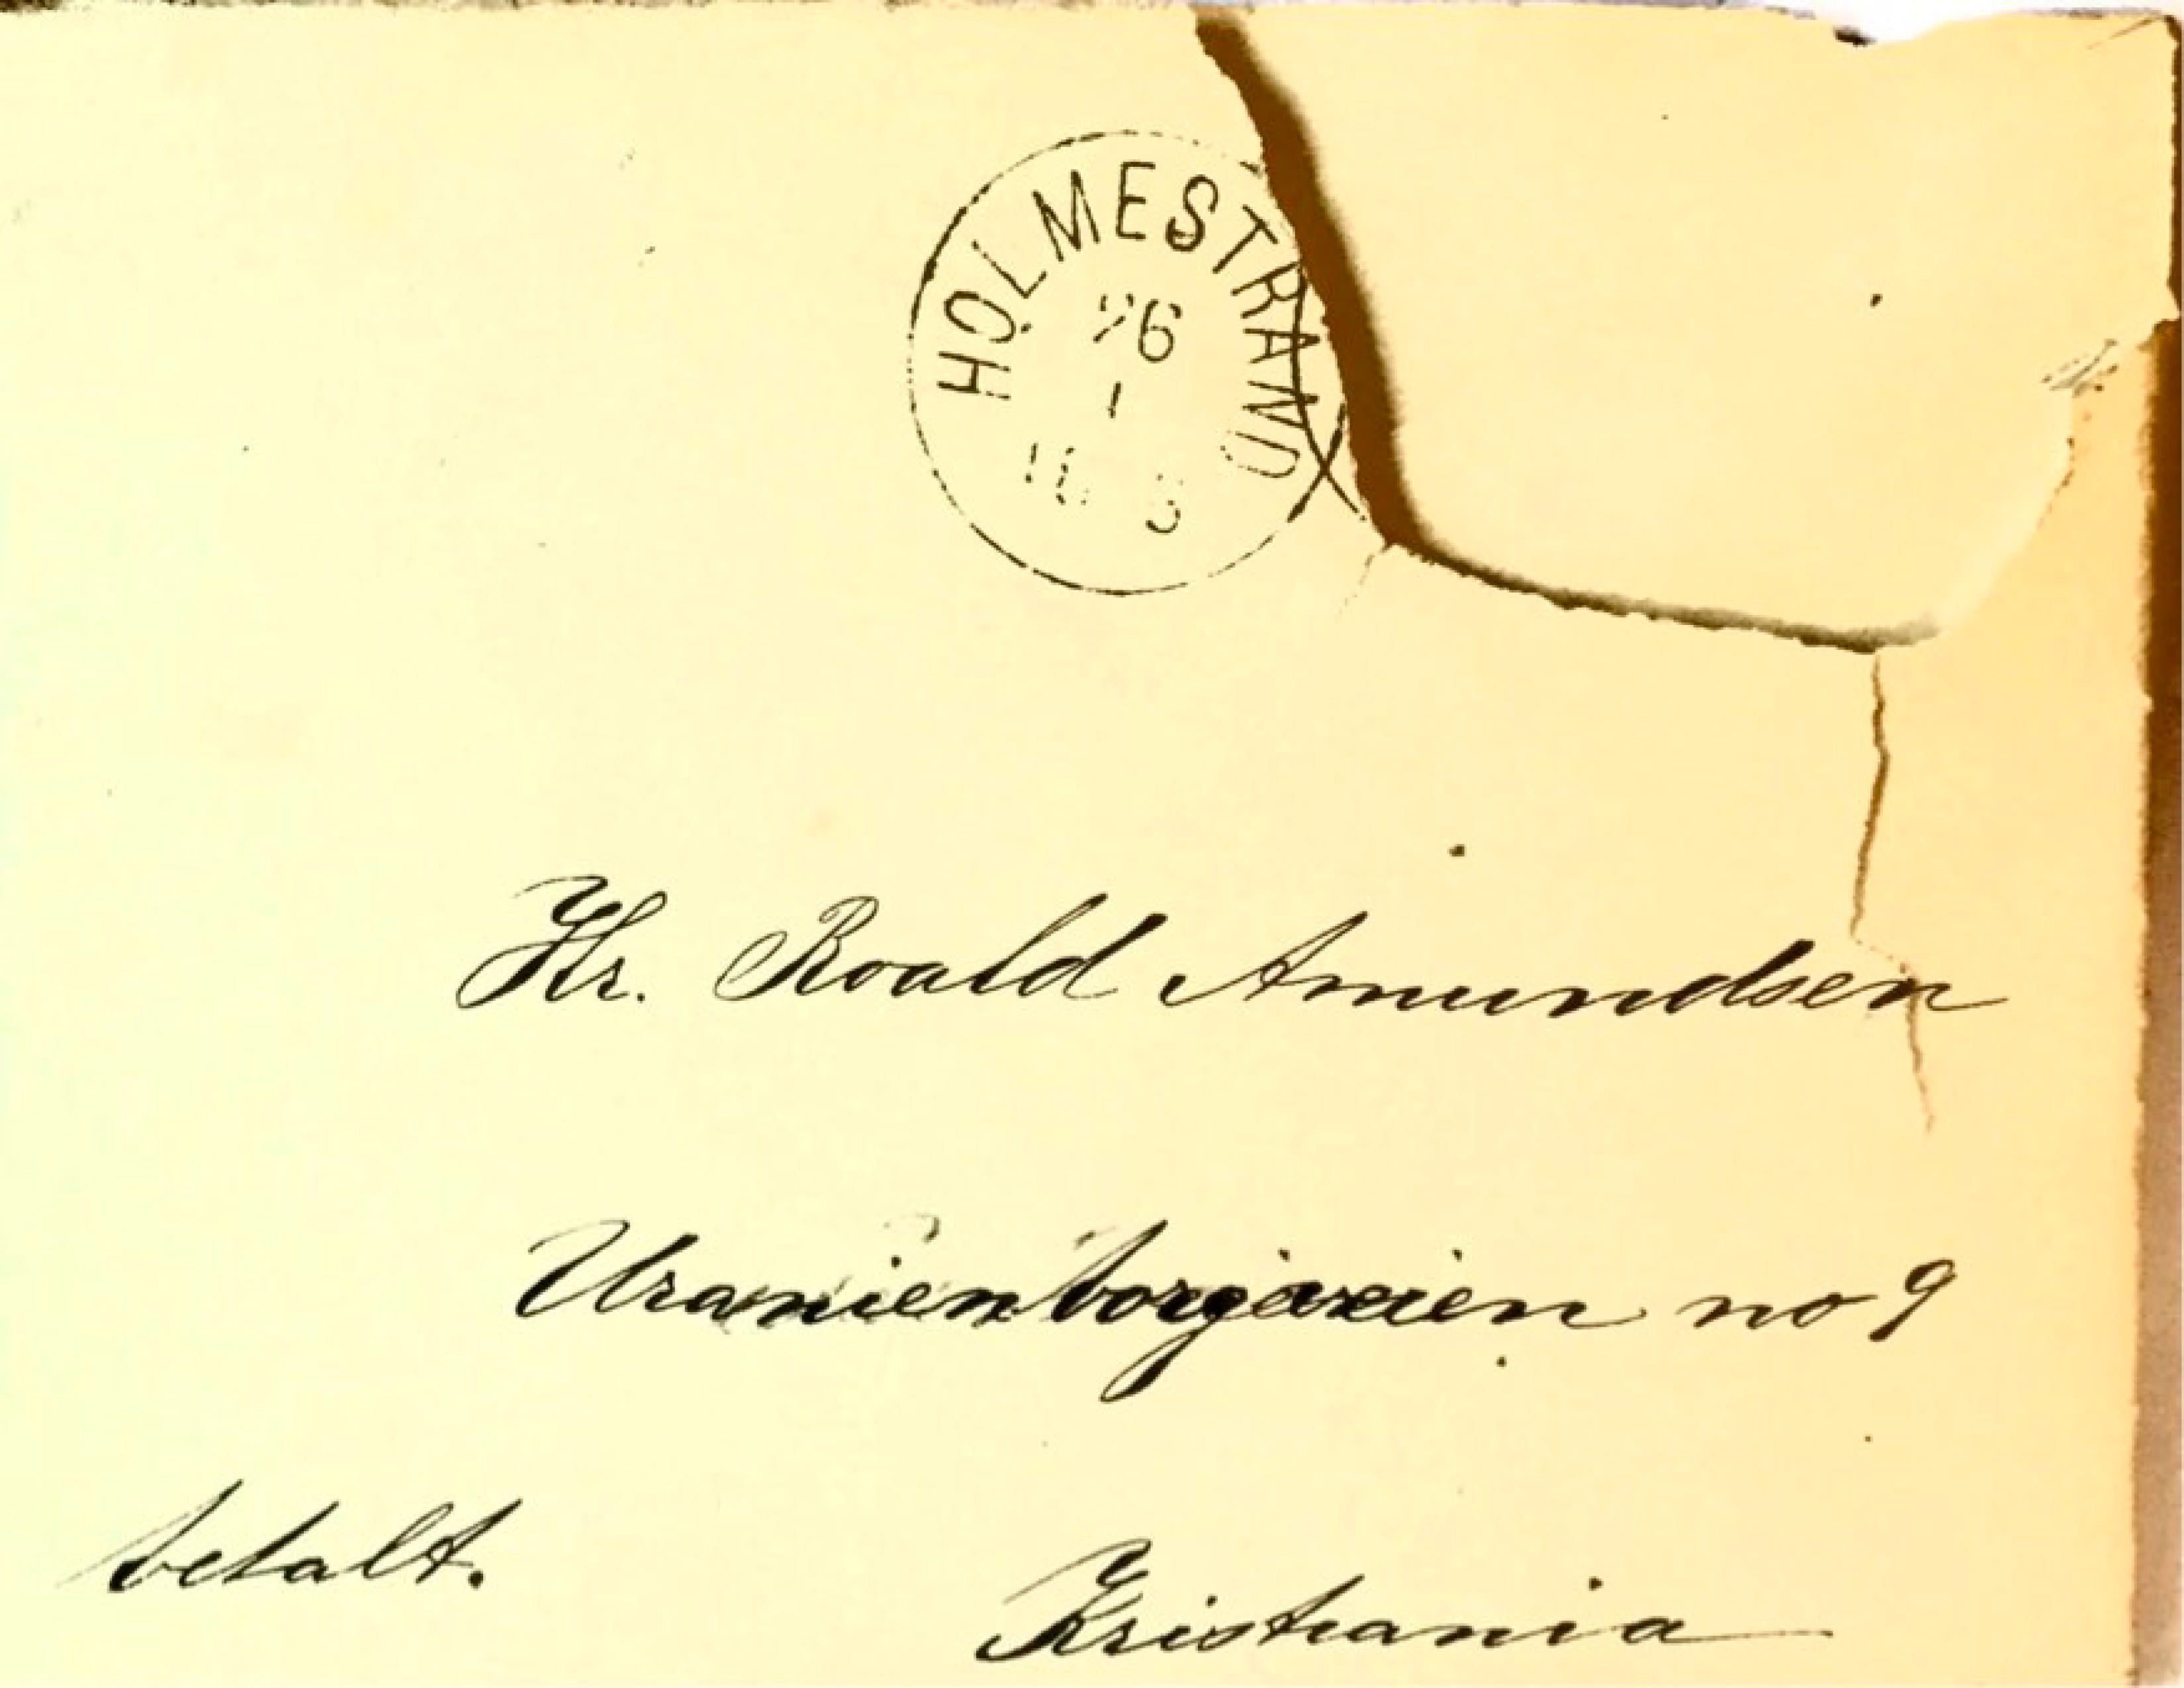 HOLMESTRAND
26
1
Hr. Roald Amundsen
Uranienborgveien no 9
betalt.
Kristiania